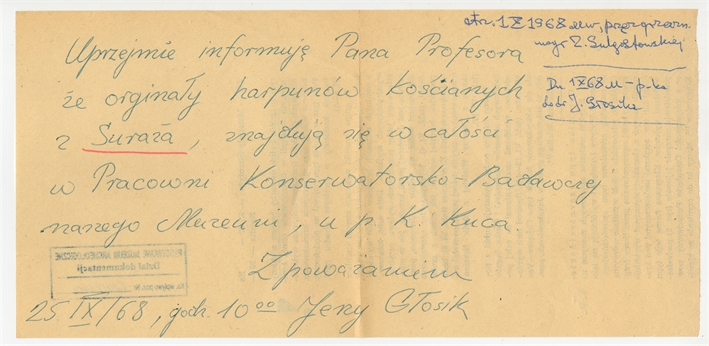 otrz. 1 X 1968
mgr Z. Sulgostowskiej
Dn 1 X 68
do dr J. Głosika
Uprzejmie informuję Pana Profesora
że orginały harpunów kościanych
z Suraża, znajdują się w całości
w Pracowni Konserwatorsko-Badawczej
naszego Muzeum, u p. K. Kuca.
Z poważaniem
25 IX/68, godz. 10 00 Jerzy Głosik
PAŃSTWOWE MUZEUM ARCHEOLOGICZNE
Dział dokumentacji